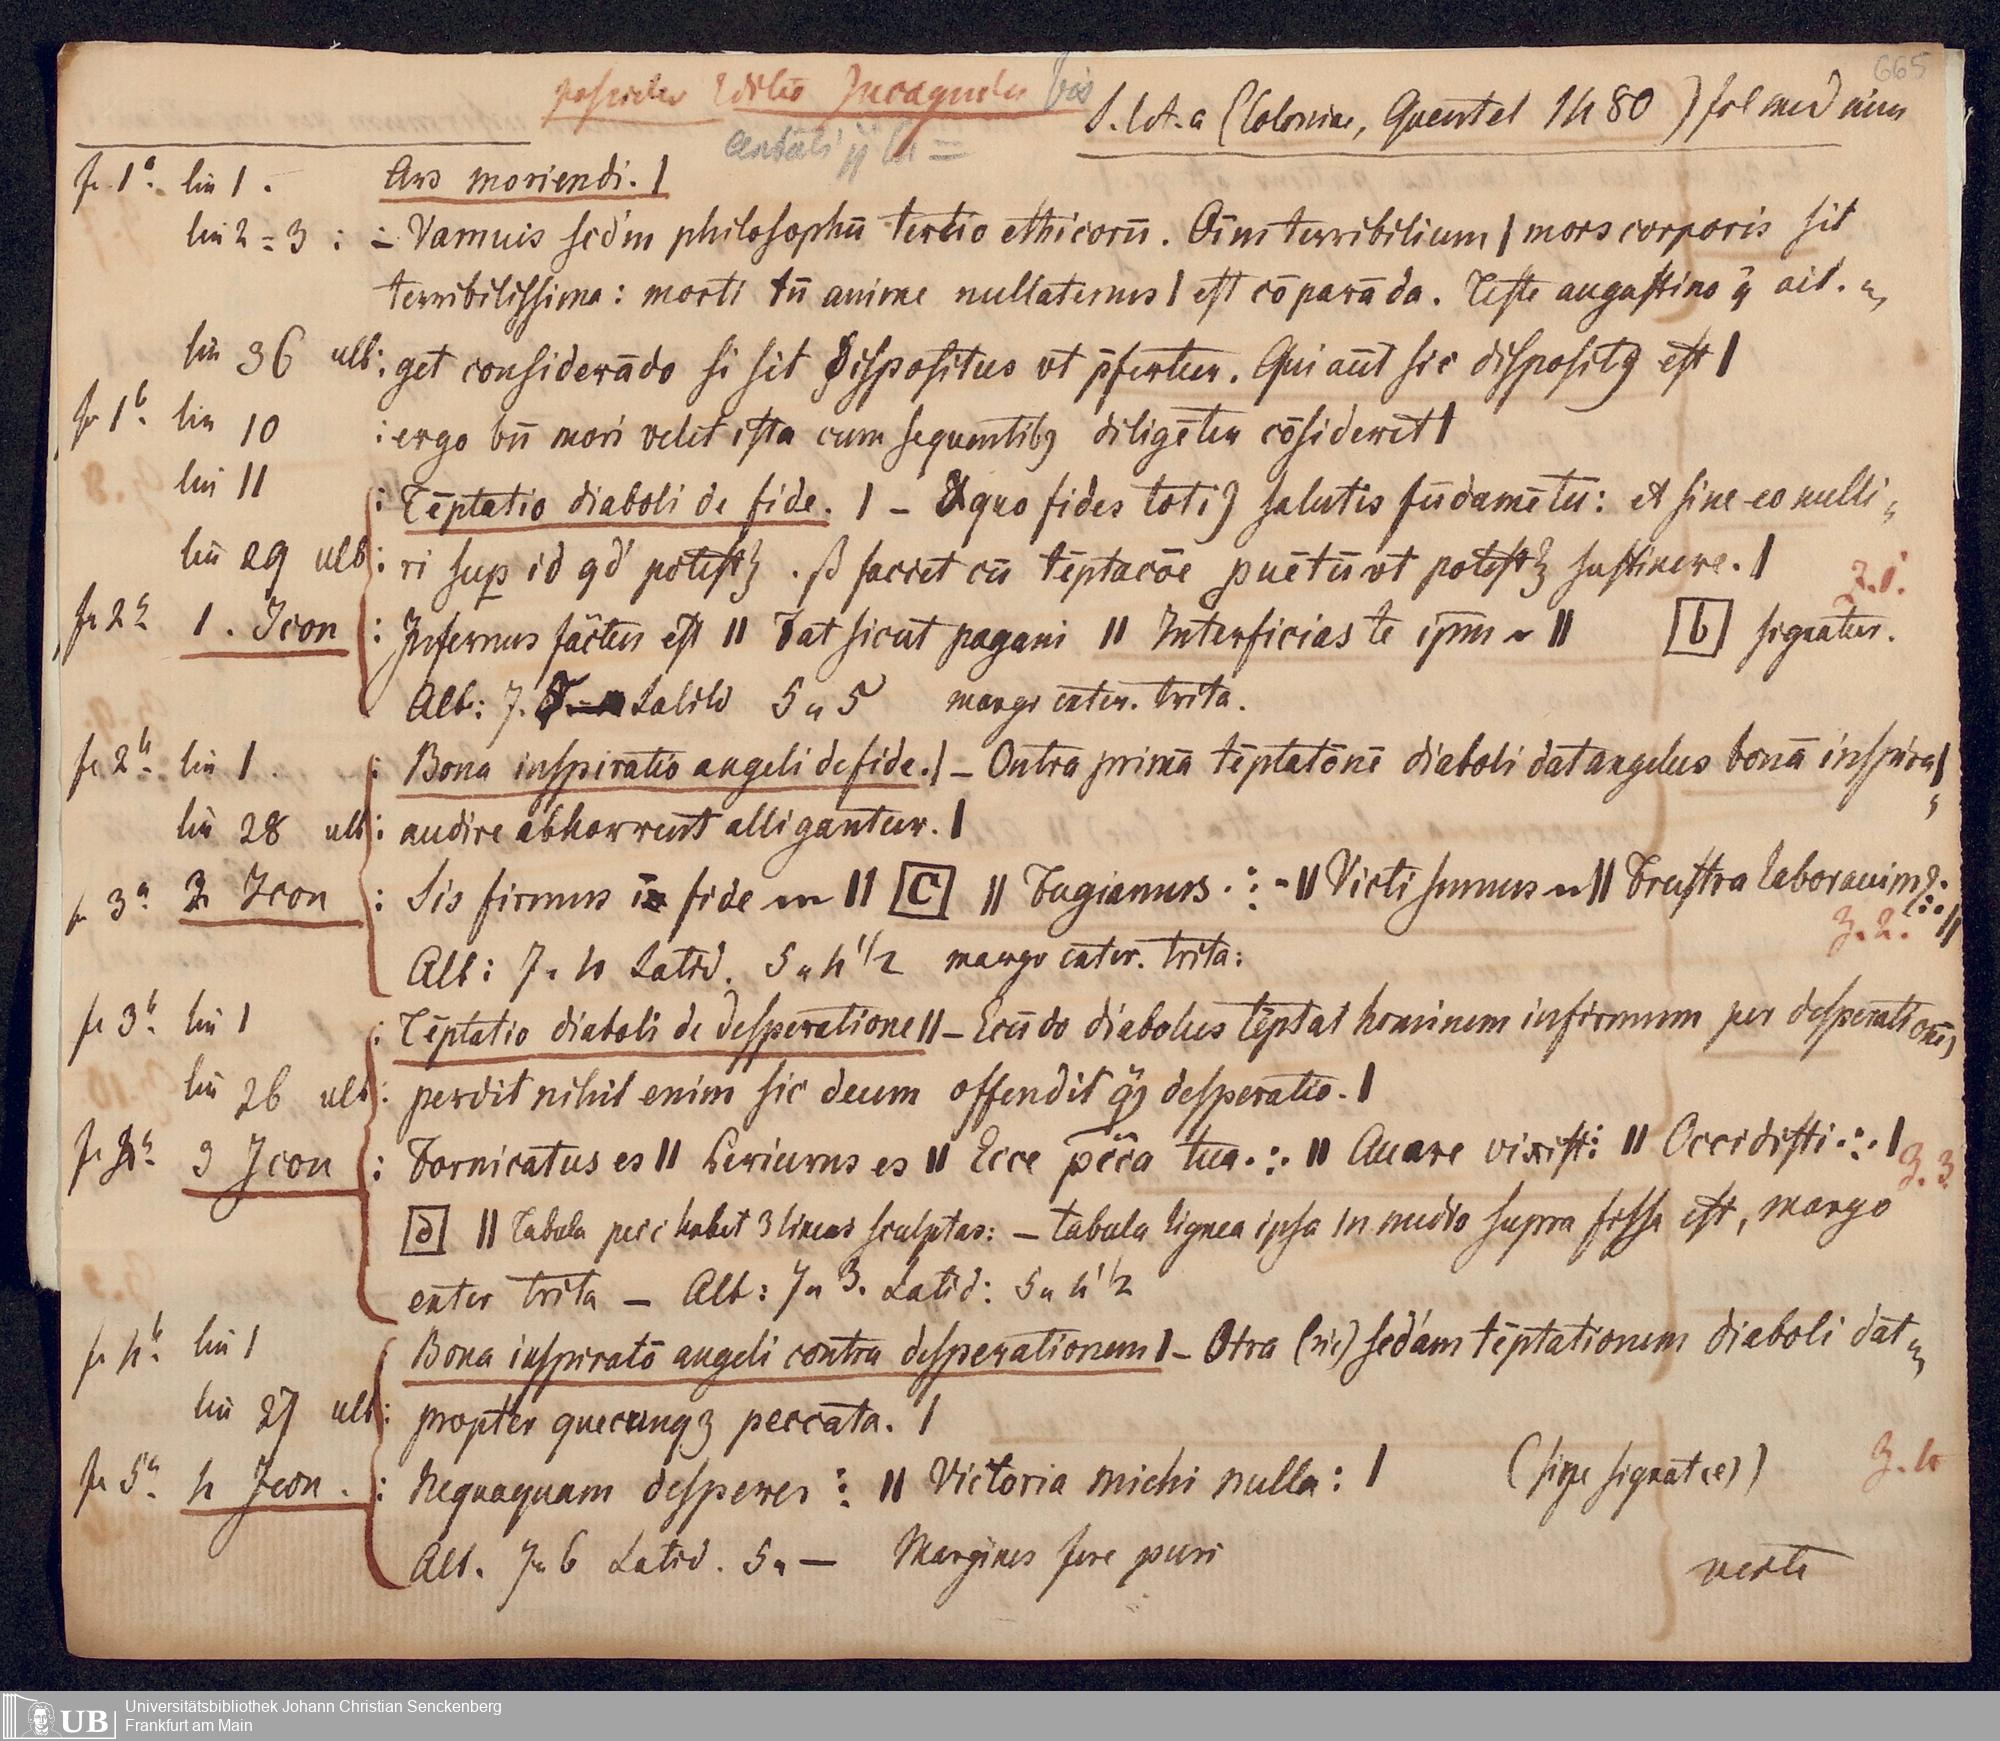 665
Editio
S. l. et. a (Coloniae, Quentel 1480) fol medium
fr. 1a. lin 1. Ars moriendi. |
lin 2=3 : =Vamuis sedm philosophū tertio ethicorū. Oīm terribilium | mors corporis sit
terribilissima: morti tn̄ anime nullatenus | est cōparāda. Teste augustino q ait.
lin 36 ult: get considerādo si sit dispositus vt p̄fertur. Qui aūt sic disposit9 est |
fr 1b. lin 10 : ergo bn̄ mori velit ista cum sequentib9 diligēter cōsideret |
lin 11 : Tēptatio diaboli de fide. | – Exquo fides toti9 salutis fūdamētū: et sine eo nulli
lin 29 ult: ri sup id qd potestʒ . ß faciet cū tēptacōe puētū vt potestʒ sustinere. |
fr 2a 1. Icon : Infernus factus est || Fat sicut pagani || Interficias te ipm ~ || b signatur.
Alt: 7. Latid 5 " 5 margo exter. trita.
Z. 1.
fr 2b. lin 1. : Bona inspiratio angeli de fide. | – Ontra primā tēptatōnē diaboli dat angelus bonā inspira |
lin 28 ult: audire abhorrent alligantur. |
fr 3a 2 Icon : Sis firmus in fide ~ || C || Fugiamus .:. || Victi sumus ~ || Frustra laborauim9.:. ||
Z. 2.
Alt: 7 " 4 Latid. 5 " 4 1/2 margo exter. trita:
fr 3b. lin 1 : Tēptatio diaboli de desperatione || – Ecūdo diabolus tēptat hominem infirmum per desperationē
lin 26 ult: perdit nihil enim sic deum offendit qʒ desperatio. |
fr 4a. 3 Icon : Fornicatus es || Periurus es || Ecce pcc̄a tua .:. || Auare vixisti: || Occidisti .:. |
Z. 3
d || Tabula pecc habet 3 lineas sculptas: – tabula lignea ipsa in medio supra fissa est, margo
exter trita – Alt: 7 " 3. Latid: 5 " 4 1/2
fr 4b. lin 1 Bona inspiratō angeli contra desperationem | – Otra (sic) sedam tēptationem diaboli dat
lin 27 ult: propter quecunqʒ peccata. |
fr 5a. 4 Icon. : Nequaquam desperes : || Victoria michi nulla : | (sine signat(e))
Z. 4
Alt. 7 " 6 Latid. 5 " – Margines fere puri
verte
Universitätsbibliothek Johann Christian Senckenberg
UB Frankfurt am Main